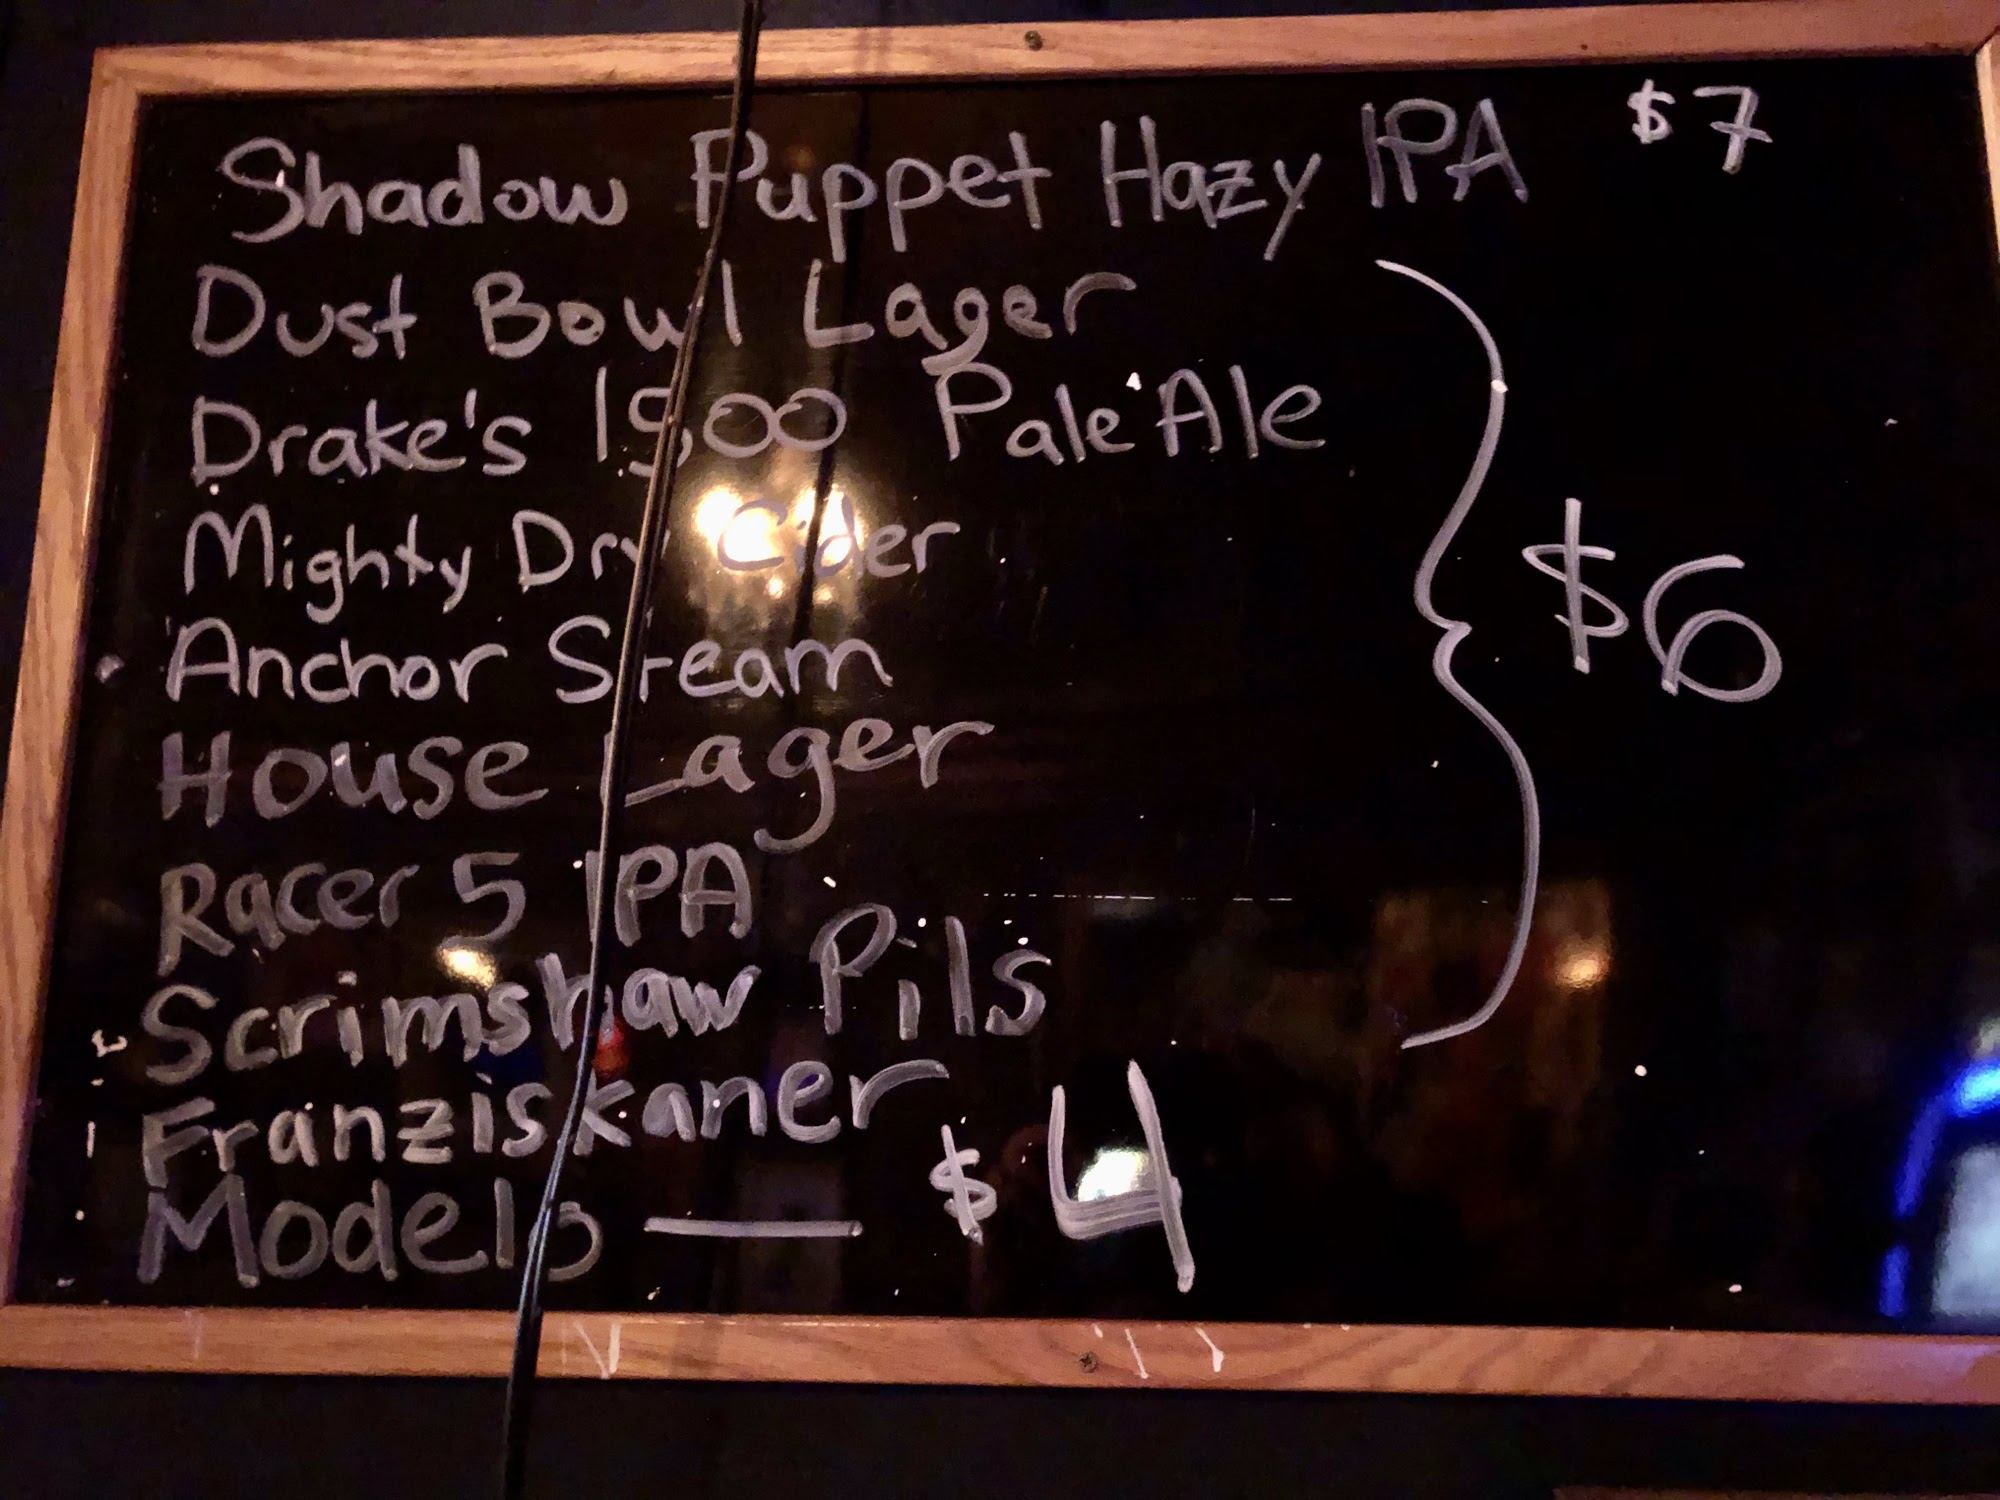 Shadow Puppet Hazy IPA $7
Dust Bowl Lager
Drake's 1500 Pale Ale
Mighty Dry Cider
Anchor Steam
House Lager
Racer 5 IPA
Scrimshaw Pils
$6
Franziskaner
Modelo — $4